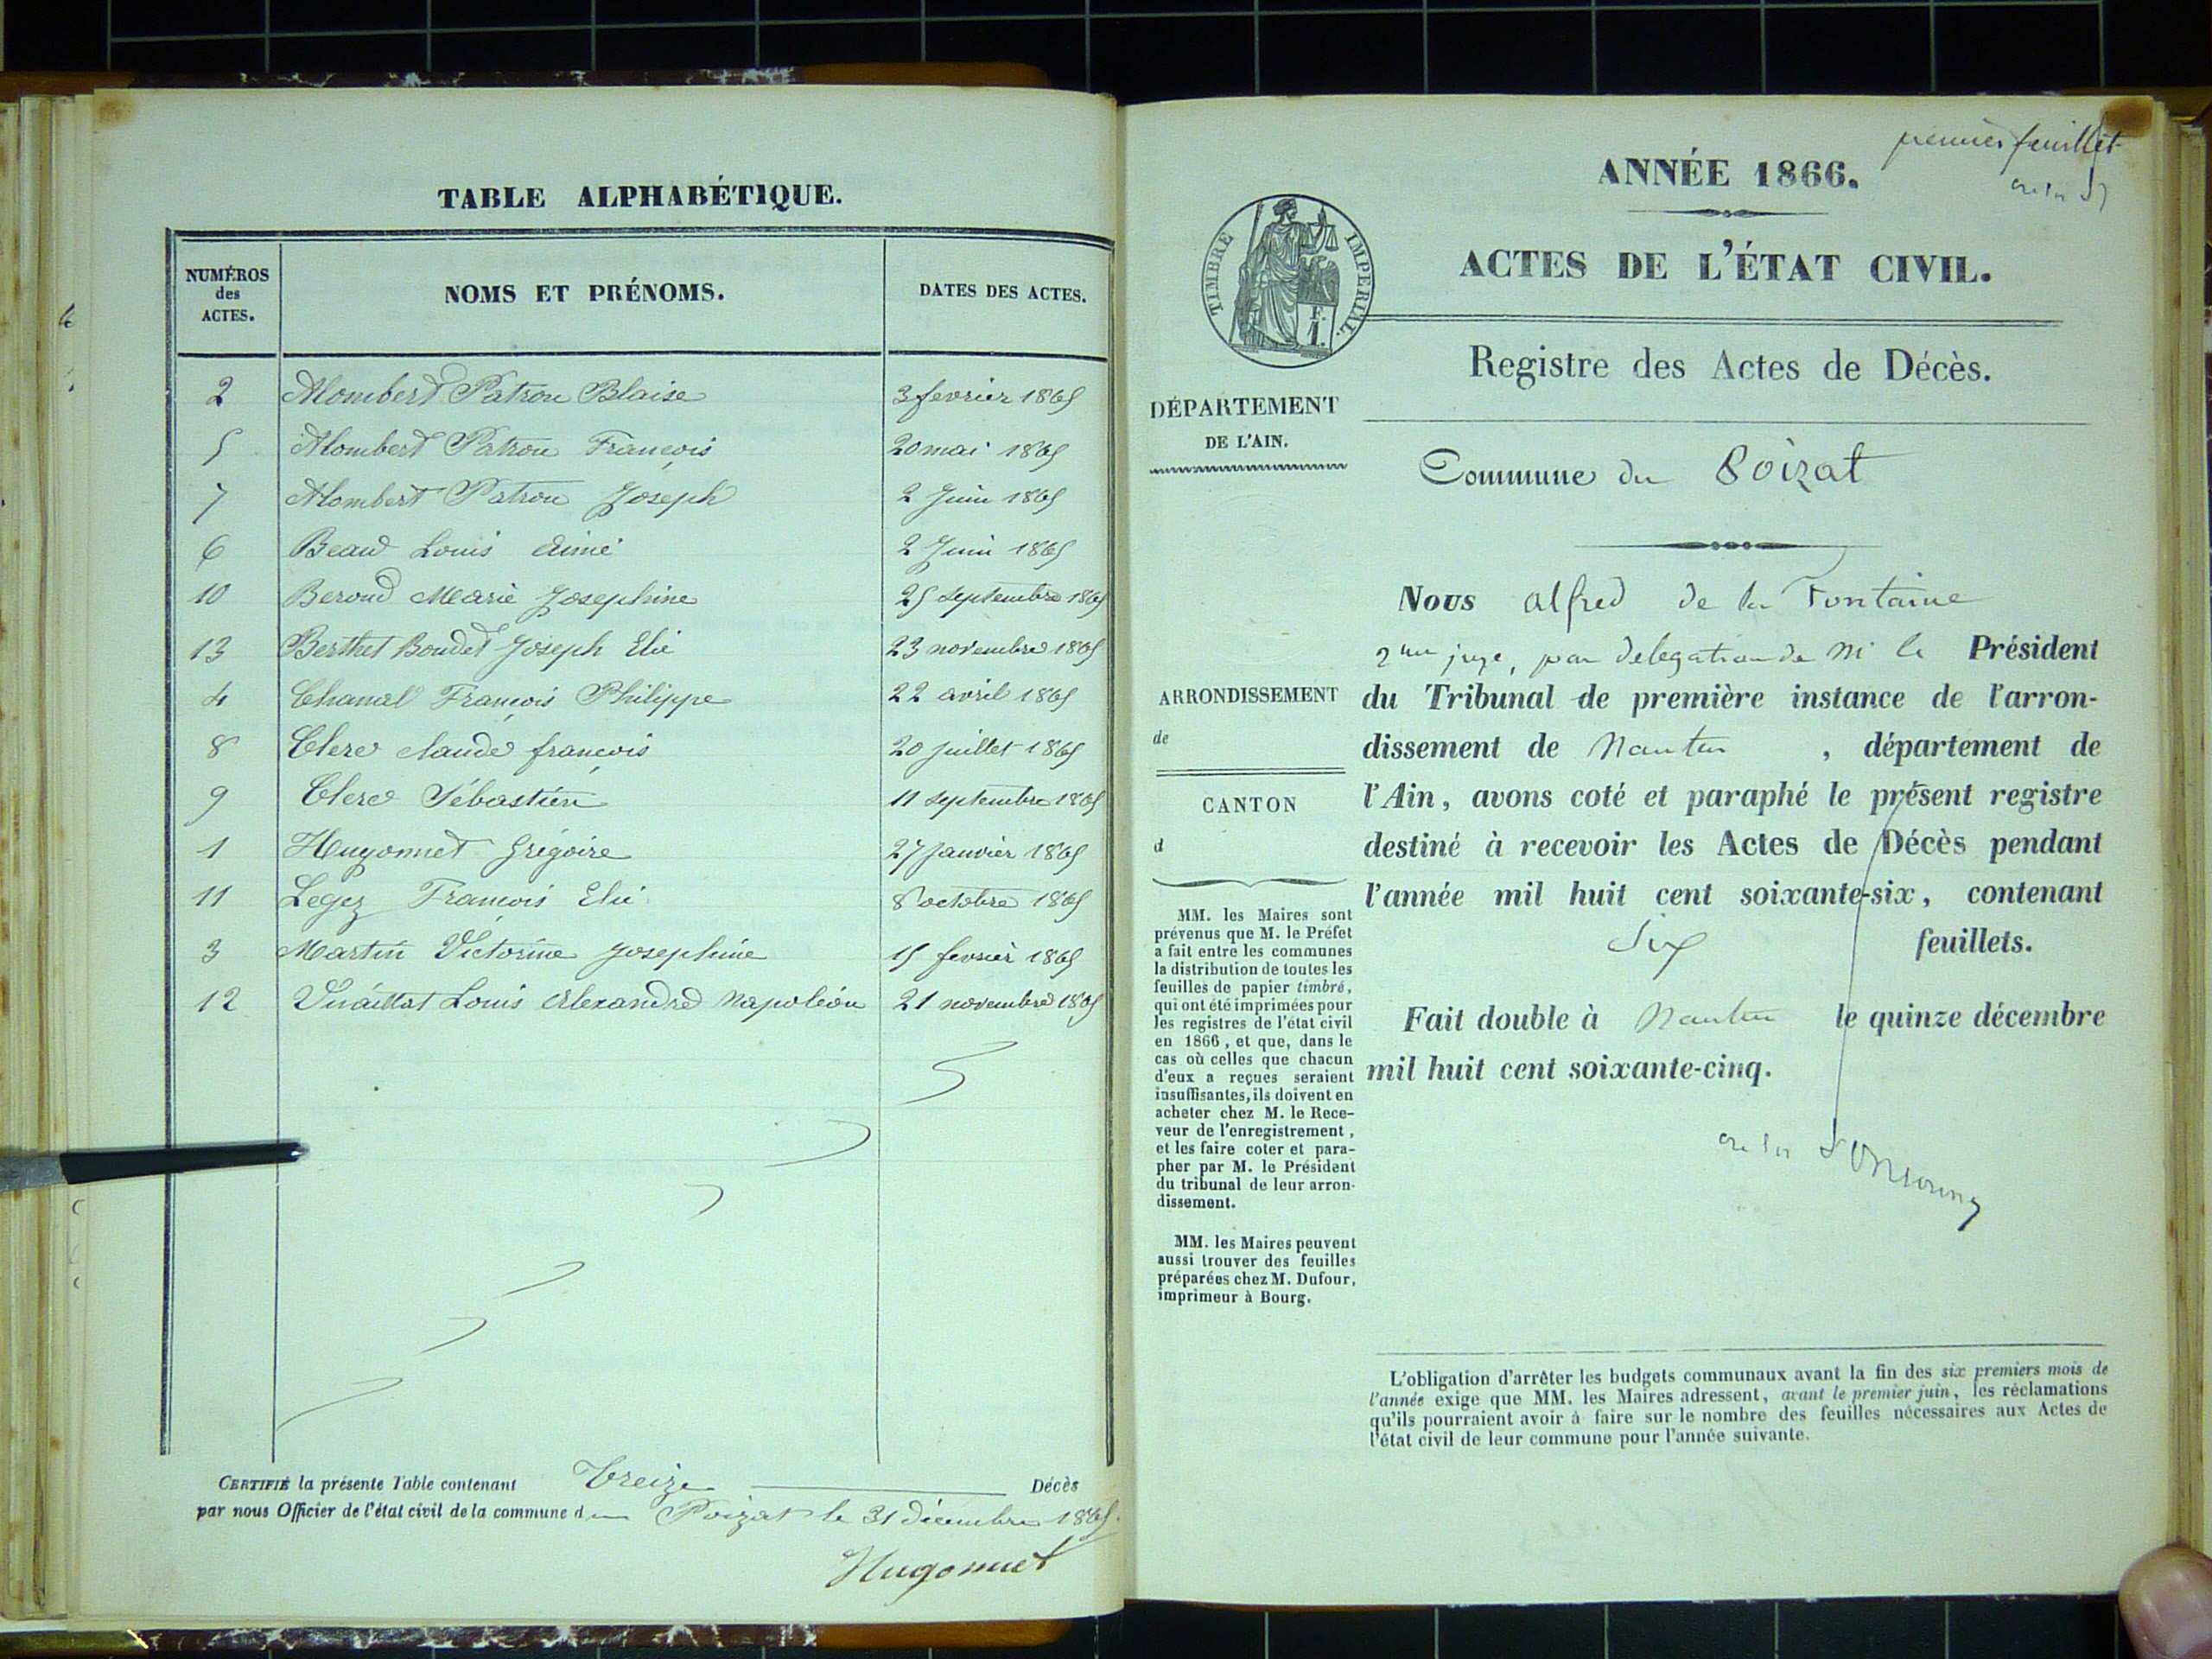 TABLE ALPHABÉTIQUE.
NUMÉROS des ACTES.
NOMS ET PRÉNOMS.
DATES DES ACTES.
2 Alombert Patron Blaise 3 fevrier 1865
5 Alombert Patron François 20 mai 1865
7 Alombert Patron Joseph 2 Juin 1865
6 Beaud Louis Aimé 2 Juin 1865
10 Beroud Marie Josephine 25 septembre 1865
13 Berthet Boudet Joseph Elie 23 novembre 1865
4 Chanal François Philippe 22 avril 1865
8 Clerc claude françois 20 juillet 1865
9 Clerc Sébastien 11 septembre 1865
1 Hugonnet Grégoire 27 Janvier 1865
11 Legez François Elie 8 octobre 1865
3 Martin Victorine Josephine 15 fevrier 1865
12 Vuaillat Louis Alexandre Napoléon 21 novembre 1865
CERTIFIÉ la présente Table contenant Treize Décès
par nous Officier de l'état civil de la commune du Poizat le 31 décembre 1865.
Hugonnet
premier feuillet
ANNÉE 1866.
TIMBRE IMPERIAL.
ACTES DE L'ÉTAT CIVIL.
Registre des Actes de Décès.
DÉPARTEMENT
DE L'AIN.
Commune du Poizat
Nous alfred de la Fontaine
2me juge, par delegation de Mr le Président
du Tribunal de première instance de l'arron-
dissement de Nantua, département de
l'Ain, avons coté et paraphé le présent registre
destiné à recevoir les Actes de Décès pendant
l'année mil huit cent soixante-six, contenant
Six feuillets.
Fait double à Nantua le quinze décembre
mil huit cent soixante-cinq.
ARRONDISSEMENT
de
CANTON
d
MM. les Maires sont
prévenus que M. le Préfet
a fait entre les communes
la distribution de toutes les
feuilles de papier timbré,
qui ont été imprimées pour
les registres de l'état civil
en 1866, et que, dans le
cas où celles que chacun
d'eux a reçues seraient
insuffisantes, ils doivent en
acheter chez M. le Rece-
veur de l'enregistrement,
et les faire coter et para-
pher par M. le Président
du tribunal de leur arron-
dissement.
MM. les Maires peuvent
aussi trouver des feuilles
préparées chez M. Dufour,
imprimeur à Bourg.
L'obligation d'arrêter les budgets communaux avant la fin des six premiers mois de
l'année exige que MM. les Maires adressent, avant le premier juin, les réclamations
qu'ils pourraient avoir à faire sur le nombre des feuilles nécessaires aux Actes de
l'état civil de leur commune pour l'année suivante.